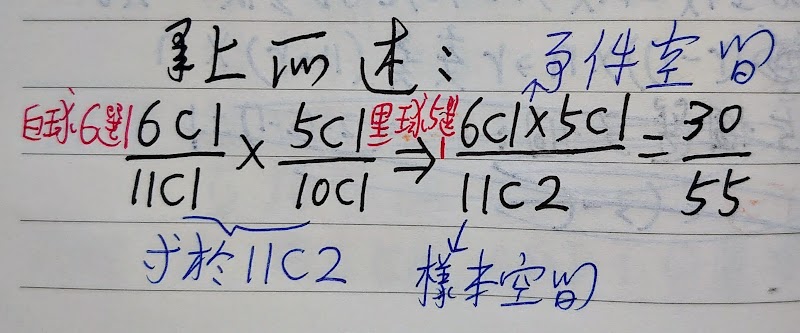 綜上所述：
事件空間
白球6選1 6C1/11C1 × 5C1/10C1 黑球5選1 ⇒ 6C1×5C1/11C2 = 30/55
寸於11C2
樣本空間